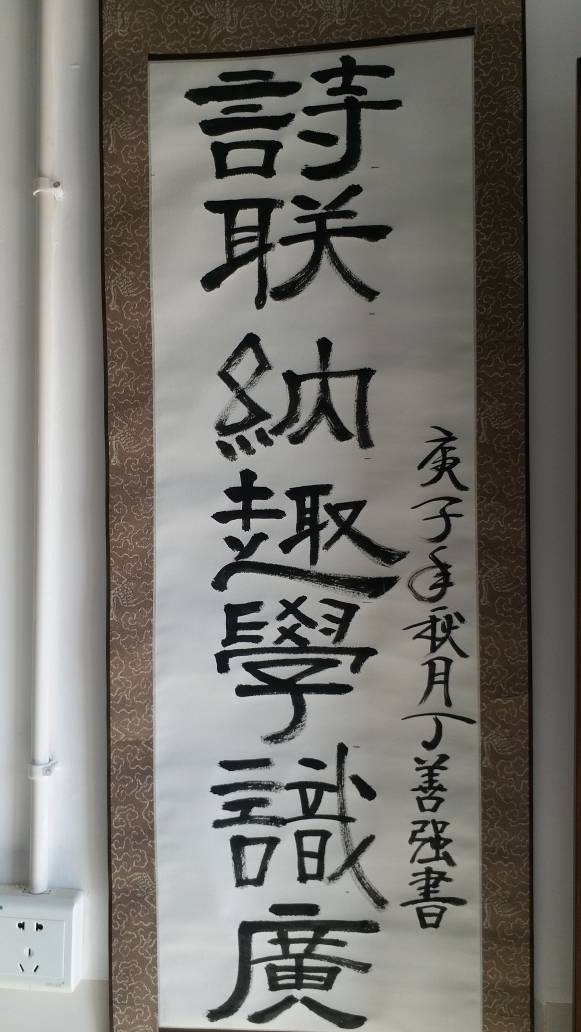 詩联納趣學識廣
庚子年秋月丁善强書